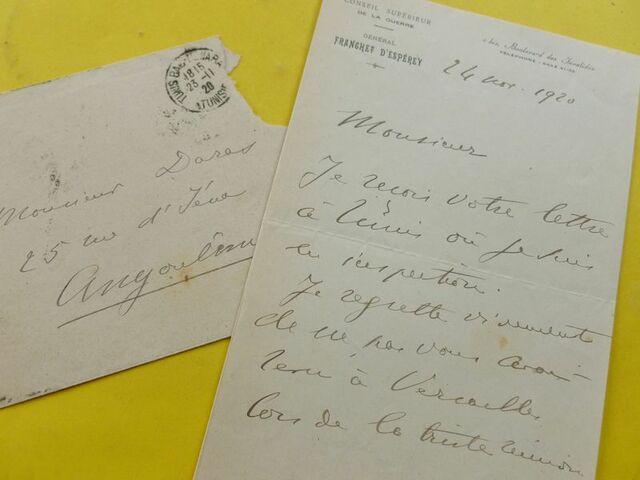 TUNIS
18 15
23 - 11
20
TUNISIE
Monsieur Daras
25 rue d'Iéna
Angoulême
CONSEIL SUPÉRIEUR
DE LA GUERRE
GÉNÉRAL
FRANCHET D'ESPÉREY
Boulevard des Invalides
TÉLÉPHONE
24 nov. 1920
Monsieur
Je reçois votre lettre
à Tunis où je suis
en inspection.
Je regrette vivement
de ne pas vous avoir
venu à Versailles
lors de la triste réunion